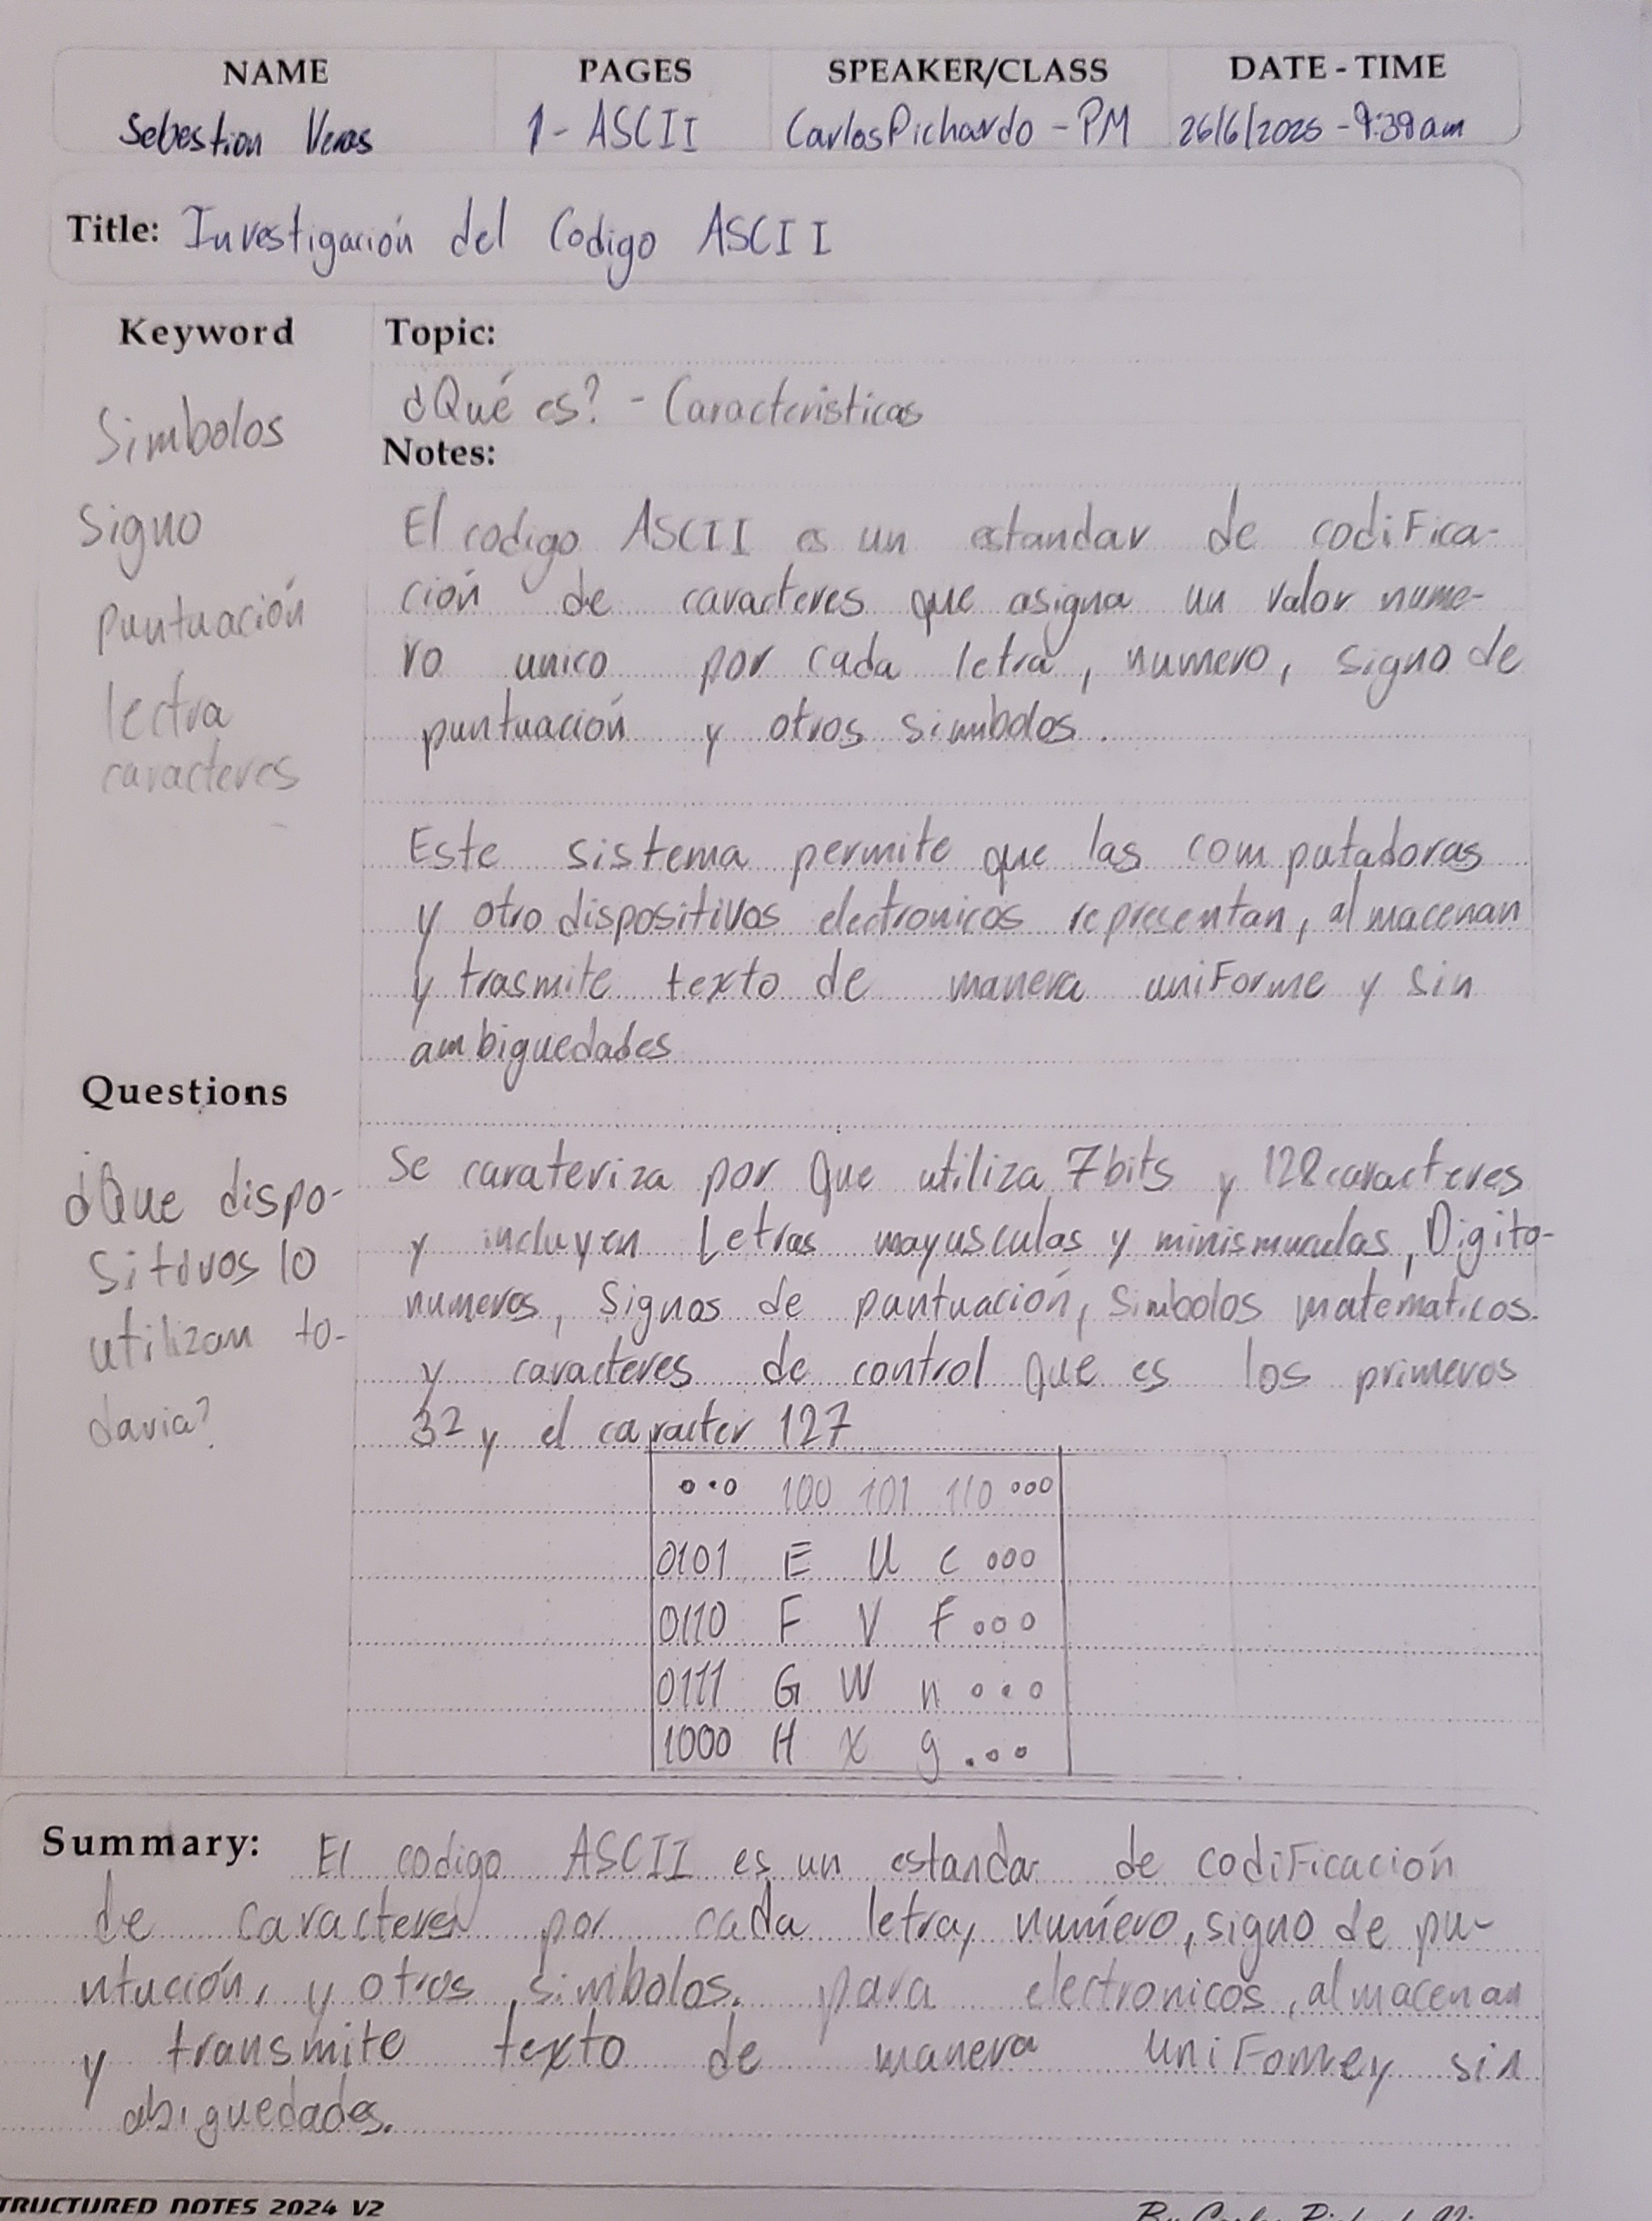 NAME PAGES SPEAKER/CLASS DATE - TIME
Sebestion Veras 1- ASCII Carlos Pichardo - PM 26/6/2025 - 9:39am
Title: Investigación del Codigo ASCII
Keyword
Simbolos
Signo
puntuación
lectra
caracteres
Topic:
¿Qué es? - Caracteristicas
Notes:
El codigo ASCII es un estandar de codifica-
ción de caracteres que asigna un valor nume-
ro unico por cada letra, numero, signo de
puntuación y otros simbolos.
Este sistema permite que las computadoras
y otro dispositivos electronicos representan, almacenan
y trasmite texto de manera uniforme y sin
ambiguedades
Questions
¿Que dispo-
sitivos lo
utilizan to-
davia?
Se carateriza por que utiliza 7bits y 128 caracteres
y incluyen Letras mayusculas y minismuculas, Digito-
numeros, Signos de puntuación, Simbolos matematicos.
y caracteres de control que es los primeros
32 y el caracter 127
ooo 100 101 110 ooo
0101 E U c ooo
0110 F V f ooo
0111 G W n ooo
1000 H X g ooo
Summary: El codigo ASCII es un estandar de codificación
de caracteres por cada letra, numero, signo de pu-
ntución, y otros simbolos. para electronicos, almacenan
y transmite texto de manera unifomrey sin
abiguedades.
TRUCTURED NOTES 2024 V2